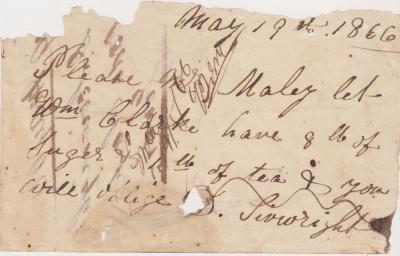 May 19th 1866
Please Maley let
Wm Clarke have 8 lb of
Suger & 1 lb of tea & you
will oblige S. Sivwright